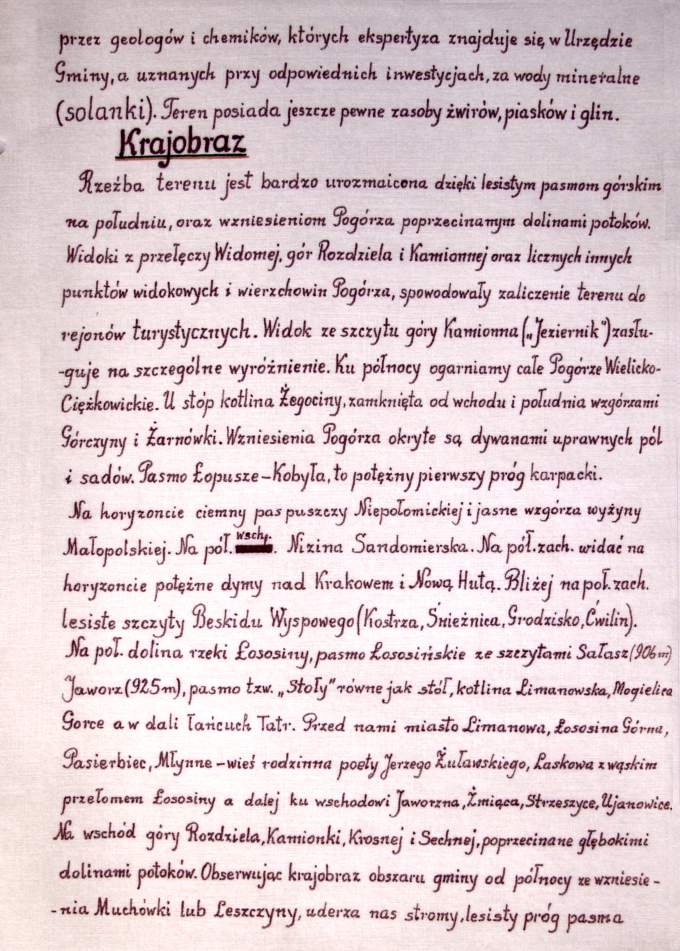 przez geologów i chemików, których ekspertyza znajduje się w Urzędzie
Gminy, a uznanych przy odpowiednich inwestycjach, za wody mineralne
(solanki). Teren posiada jeszcze pewne zasoby żwirów, piasków i glin.
Krajobraz
Rzeźba terenu jest bardzo urozmaicona dzięki lesistym pasmom górskim
na południu, oraz wzniesieniom Pogórza poprzecinanym dolinami potoków.
Widoki z przełęczy Widomej, gór Rozdziela i Kamionnej oraz licznych innych
punktów widokowych i wierzchowin Pogórza, spowodowały zaliczenie terenu do
rejonów turystycznych. Widok ze szczytu góry Kamionna („Jeziernik") zasłu-
-guje na szczególne wyróżnienie. Ku północy ogarniamy całe Pogórze Wielicko-
Ciężkowickie. U stóp kotlina Żegociny, zamknięta od wchodu i południa wzgórzami
Górczyny i Żarnówki. Wzniesienia Pogórza okryte są dywanami uprawnych pól
i sadów. Pasmo Łopusze-Kobyła, to potężny pierwszy próg karpacki.
Na horyzoncie ciemny pas puszczy Niepołomickiej i jasne wzgórza wyżyny
Małopolskiej. Na pół. wsch. Nizina Sandomierska. Na pół.zach. widać na
horyzoncie potężne dymy nad Krakowem i Nową Hutą. Bliżej na poł.zach.
lesiste szczyty Beskidu Wyspowego (Kostrza, Śnieżnica, Grodzisko, Ćwilin).
Na poł. dolina rzeki Łososiny, pasmo Łososińskie ze szczytami Sałasz (906 m)
Jaworz (925 m), pasmo tzw. „Stoły" równe jak stół, kotlina Limanowska, Mogielica
Gorce a w dali łańcuch Tatr. Przed nami miasto Limanowa, Łososina Górna,
Pasierbiec, Młynne - wieś rodzinna poety Jerzego Żuławskiego, Laskowa z wąskim
przełomem Łososiny a dalej ku wschodowi Jaworzna, Żmiąca, Strzeszyce, Ujanowice.
Na wschód góry Rozdziela, Kamionki, Krosnej i Sechnej, poprzecinane głębokimi
dolinami potoków. Obserwując krajobraz obszaru gminy od północy ze wzniesie-
-nia Muchówki lub Leszczyny, uderza nas stromy, lesisty próg pasma